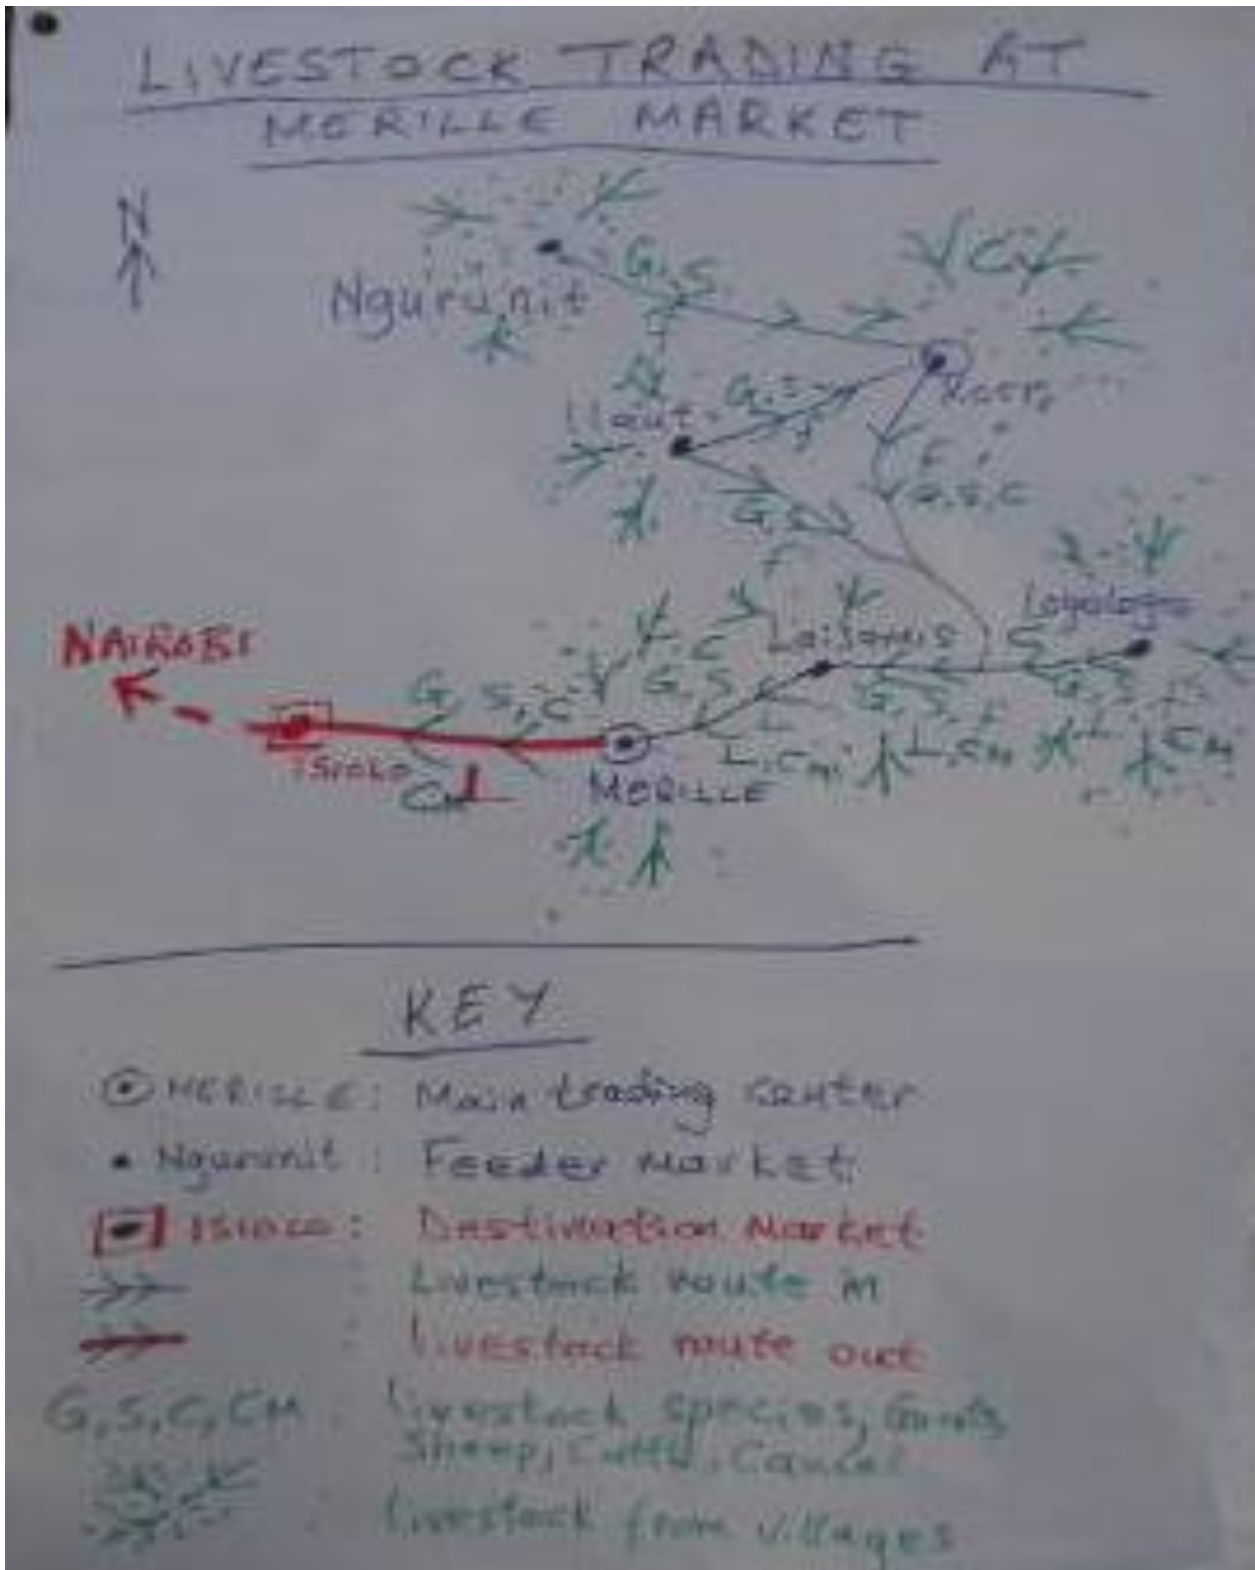 LIVESTOCK TRADING AT
MERILLE MARKET
N
G,S
C
Ngurunit
Korr
G,S
Illaut
F
G,S,C
G,S
F
Logologo
NAIROBI
C
Laisamis
S
G, S, C
G, S
G,S,
G,S,
L
L
isiolo
L,CM
L,CM
CM
CM L
MERILLE
KEY
MERILLE: Main trading center
Ngurunit: Feeder market
ISIOLO: Destination Market
: Livestock route in
: Livestock route out
G,S,C,CM : Livestock species, Goats
Sheep, Cattle, Camel
: Livestock from villages